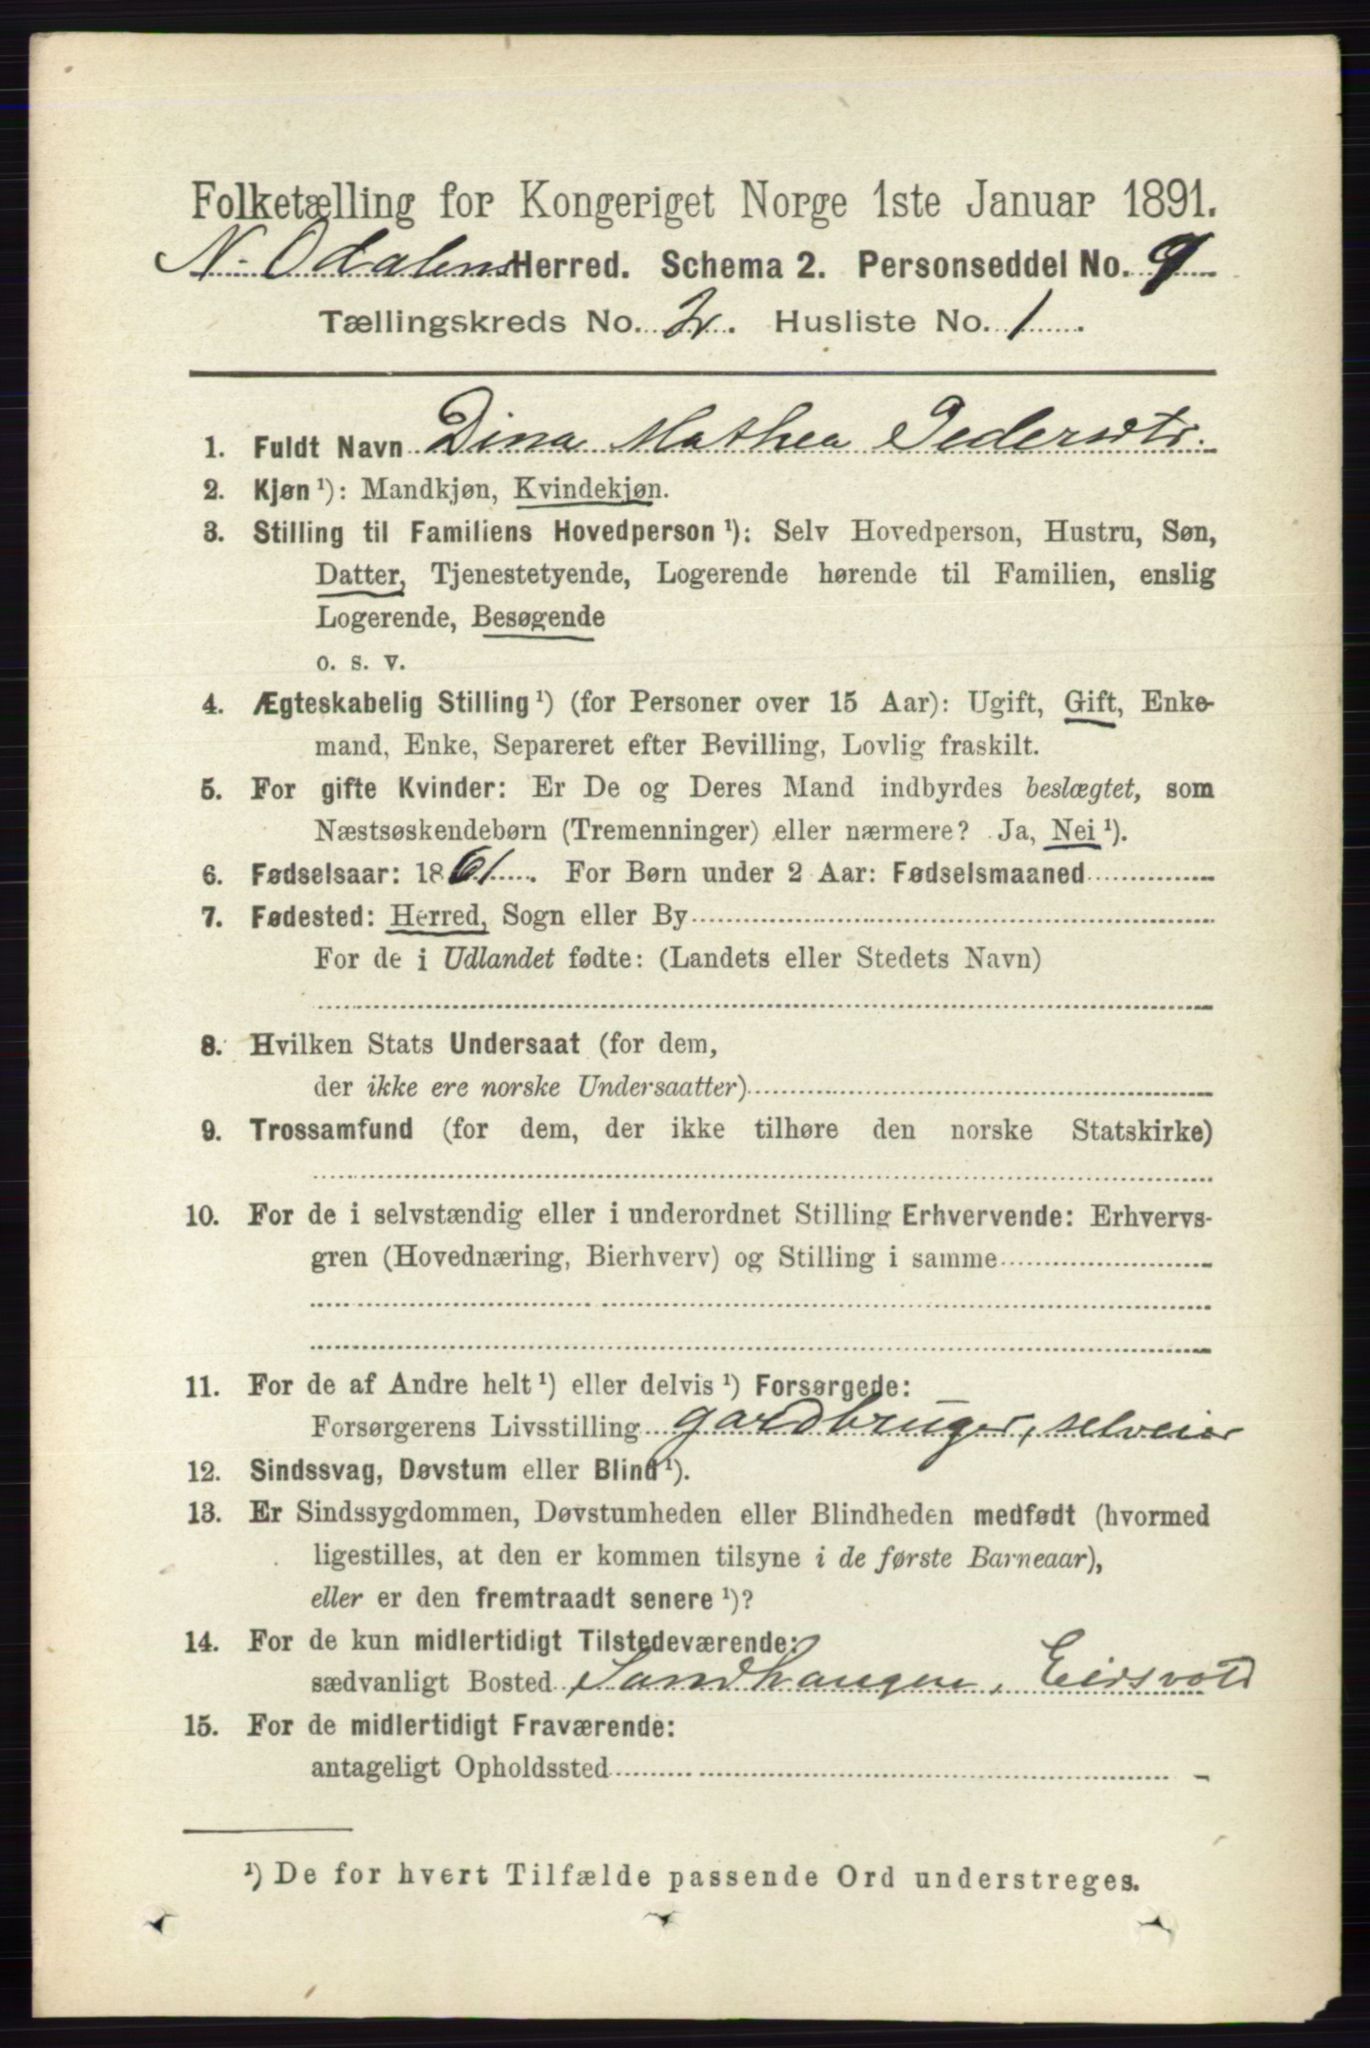 Folketælling for Kongeriget Norge 1ste Januar 1891.
N. Odalens Herred. Schema 2. Personseddel No. 9
Tællingskreds No. 2. Husliste No. 1
1. Fuldt Navn Dina Mathea Pedersdtr.
2. Kjøn ¹): Mandkjøn, Kvindekjøn.
3. Stilling til Familiens Hovedperson ¹): Selv Hovedperson, Hustru, Søn,
Datter, Tjenestetyende, Logerende hørende til Familien, enslig
Logerende, Besøgende
o. s. v.
4. Ægteskabelig Stilling ¹) (for Personer over 15 Aar): Ugift, Gift, Enke-
mand, Enke, Separeret efter Bevilling, Lovlig fraskilt.
5. For gifte Kvinder: Er De og Deres Mand indbyrdes beslægtet, som
Næstsøskendebørn (Tremenninger) eller nærmere? Ja, Nei ¹).
6. Fødselsaar: 1861. For Børn under 2 Aar: Fødselsmaaned
7. Fødested: Herred, Sogn eller By
For de i Udlandet fødte: (Landets eller Stedets Navn)
8. Hvilken Stats Undersaat (for dem,
der ikke ere norske Undersaatter)
9. Trossamfund (for dem, der ikke tilhøre den norske Statskirke)
10. For de i selvstændig eller i underordnet Stilling Erhvervende: Erhvervs-
gren (Hovednæring, Bierhverv) og Stilling i samme
11. For de af Andre helt ¹) eller delvis ¹) Forsørgede:
Forsørgerens Livsstilling gardbruger, selveier
12. Sindssvag, Døvstum eller Blind ¹).
13. Er Sindssygdommen, Døvstumheden eller Blindheden medfødt (hvormed
ligestilles, at den er kommen tilsyne i de første Barneaar),
eller er den fremtraadt senere ¹)?
14. For de kun midlertidigt Tilstedeværende:
sædvanligt Bosted Sandhaugen, Eidsvold
15. For de midlertidigt Fraværende:
antageligt Opholdssted
¹) De for hvert Tilfælde passende Ord understreges.